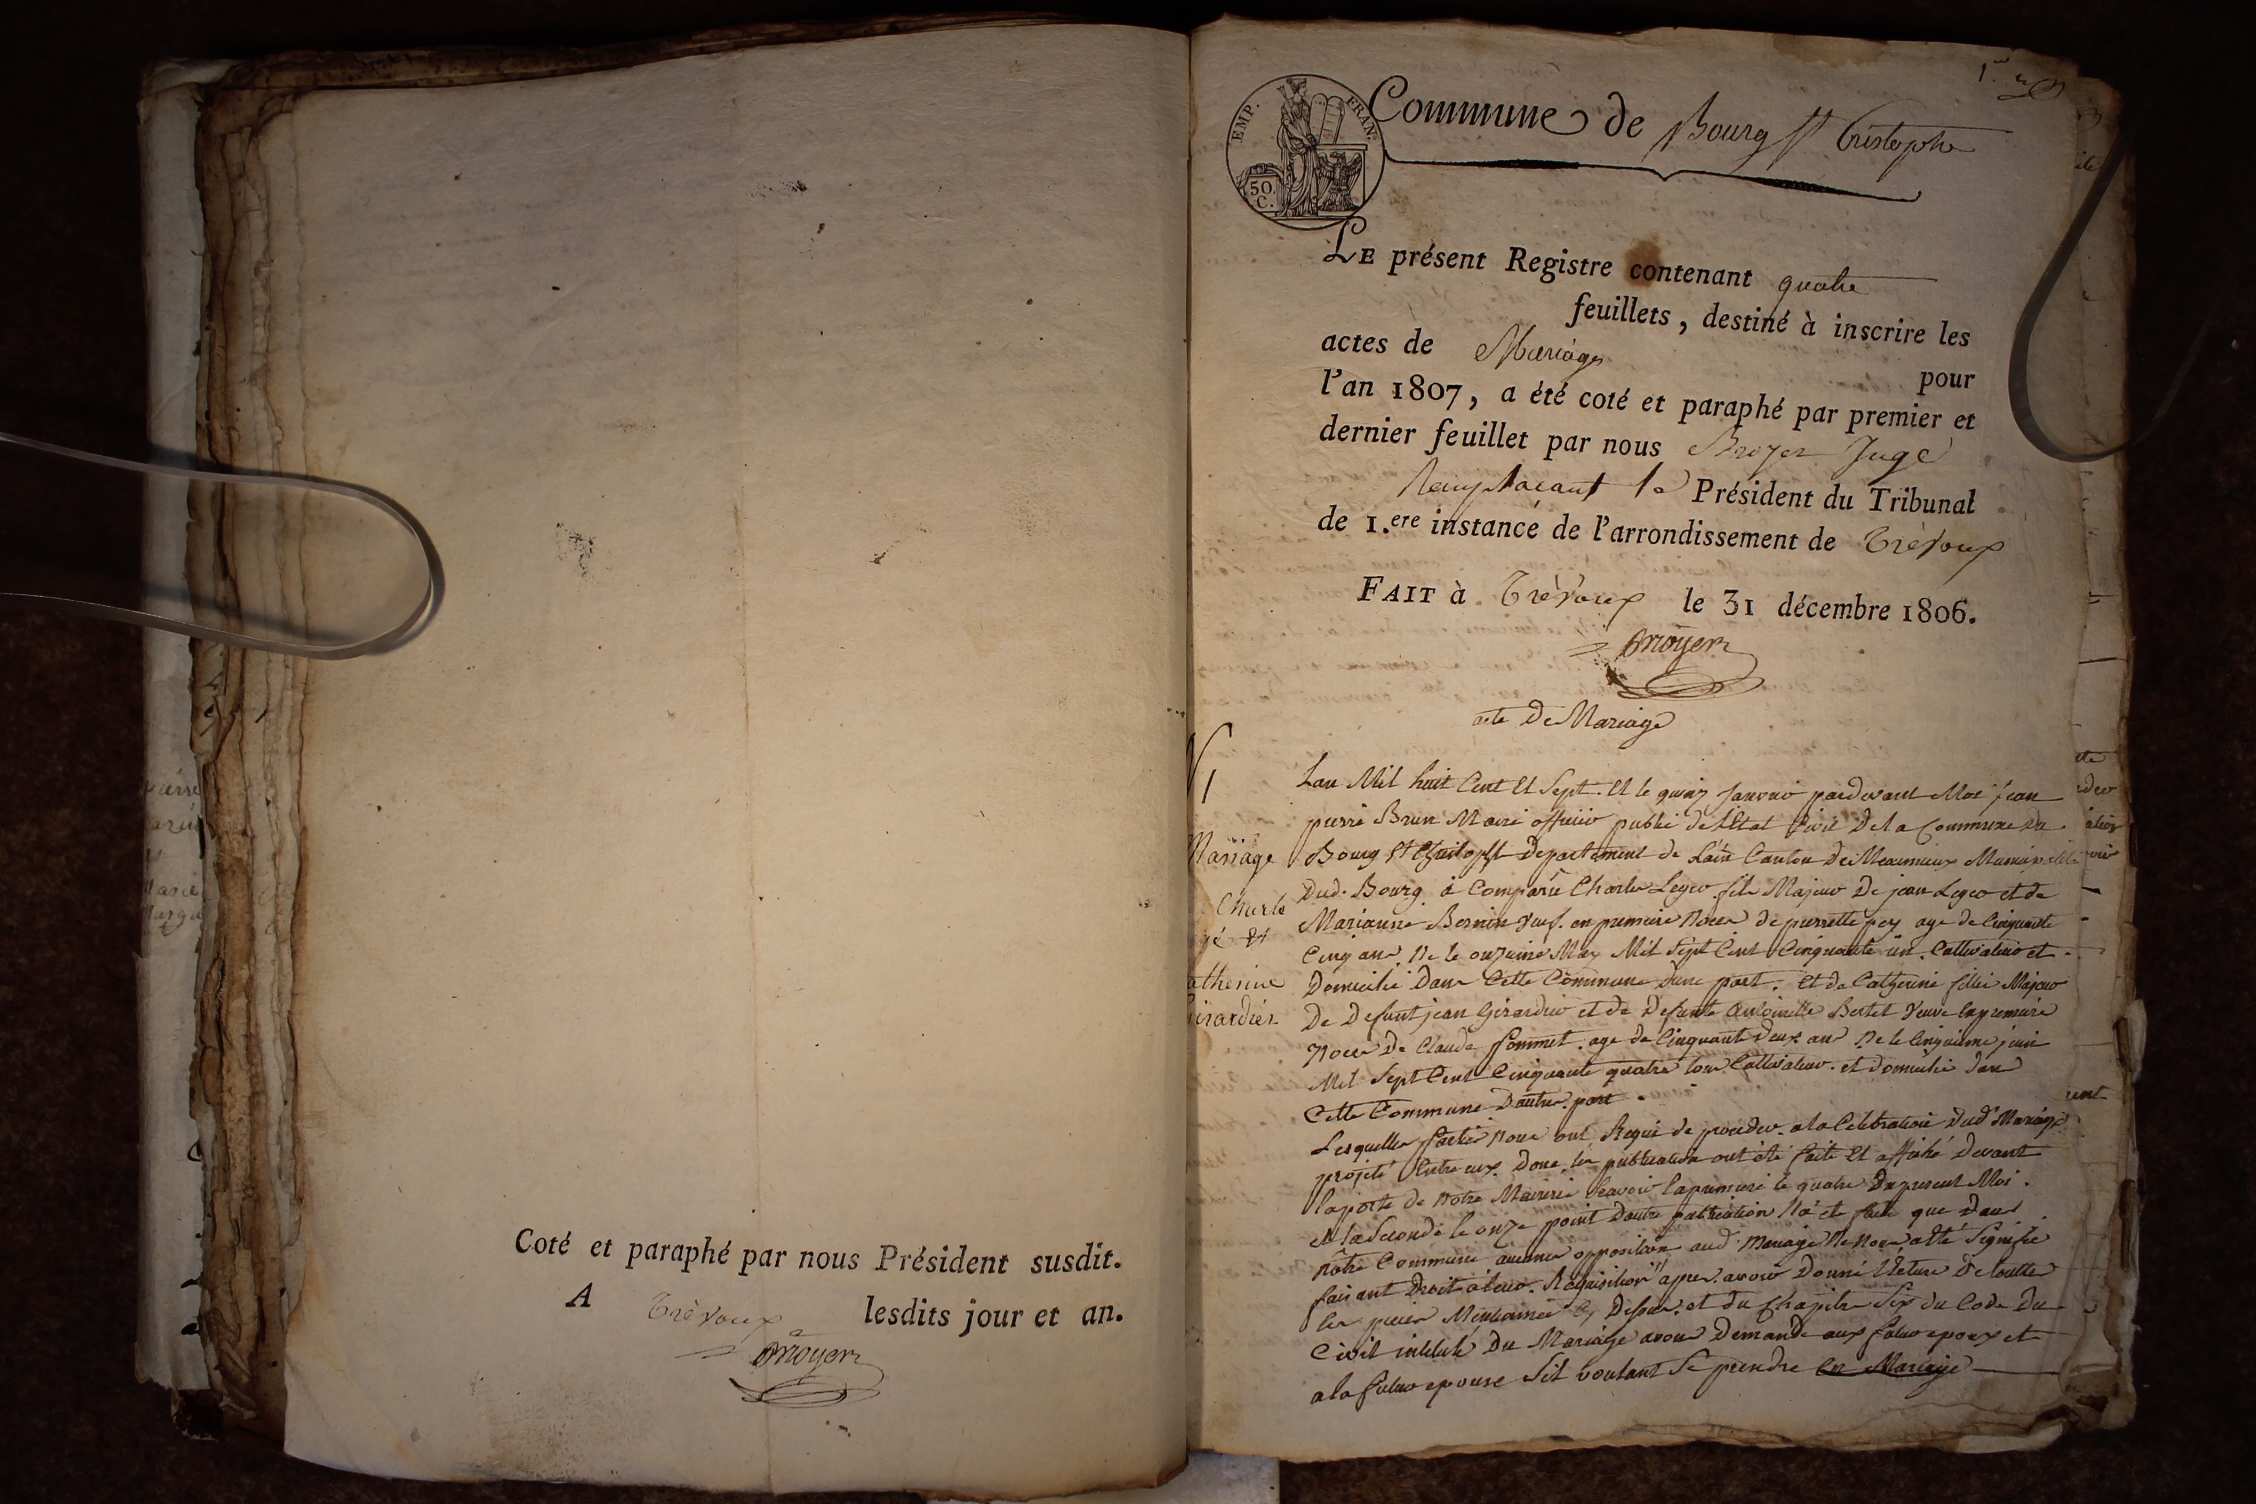 Coté et paraphé par nous Président susdit.
A Trévoux lesdits jour et an.
Broyer
1er
EMP. FRAN.
50 C.
Commune de Bourg St Cristophe
LE présent Registre contenant quatre
feuillets, destiné à inscrire les
actes de Mariages pour
l'an 1807, a été coté et paraphé par premier et
dernier feuillet par nous Broyer Juge
Remplacant le Président du Tribunal
de 1.ere instance de l'arrondissement de Trévoux
FAIT à Trévoux le 31 décembre 1806.
Broyer
acte De Mariage
N 1
Mariage
Charle
gé et
atherine
irardier
Lan Mil huit Cent Et Sept. Et le quinz Janvier pardevant Moi jean
pierre Brun Maire officier public de Létat Civil De la Commune du
Bourg St Christophe Departement de Lain Canton de Meximieux
Dud. Bourg à Comparu Charle Legeo fils Majeur De jean Legeo et de
Marianne Bernin veuf en premiere Noces de pierrette pey age de Cinquante
Cinq ans Ne le onzieme May Mil Sept Cent Cinquante un Cultivateur et
Domicilié Dans Cette Commune Dune part. Et de Catherine fille Majeur
De Defunt jean Girardier et de Defunte Antoinette Bertet Veuve En premiere
Noces De Claude Pommet age de Cinquante Deux ans Ne le Cinquieme juin
Mil Sept Cent Cinquante quatre tous Cultivateur et Domicilié Dans
Cette Commune Dautre part
Lesquelles parties Nous ont Requi de proceder a la Celebration Dud Mariage
projeté Entre eux Dont les publication ont été faite Et affiché Devant
la porte de notre Mairie Scavoir la premiere le quatre Du present Moi
et la Seconde le onze point Dautre publication Na été faite que Dans
Nôtre Commune aucune opposition aud Mariage Ne Nous a été Signifié
faisant Droit a leur Requisition apres avoir Donné Lécture De toutes
les pieces Mentionnée Cy Dessus et du Chapitre Six du Code Du
Civil intitulé Du Mariage avons Demandé aux futur epoux et
a la future epouse Sil voulant Se prendre en Mariage